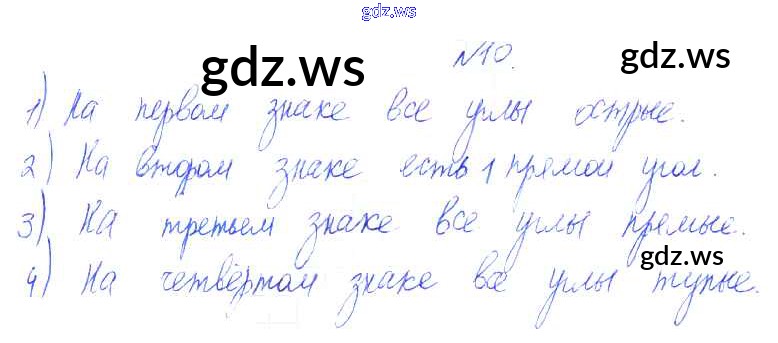 gdz.ws
№10.
gdz.ws gdz.ws
1) На первом знаке все углы острые.
2) На втором знаке есть 1 прямой угол.
3) На третьем знаке все углы прямые.
gdz.ws
4) На четвёртом знаке все углы тупые.